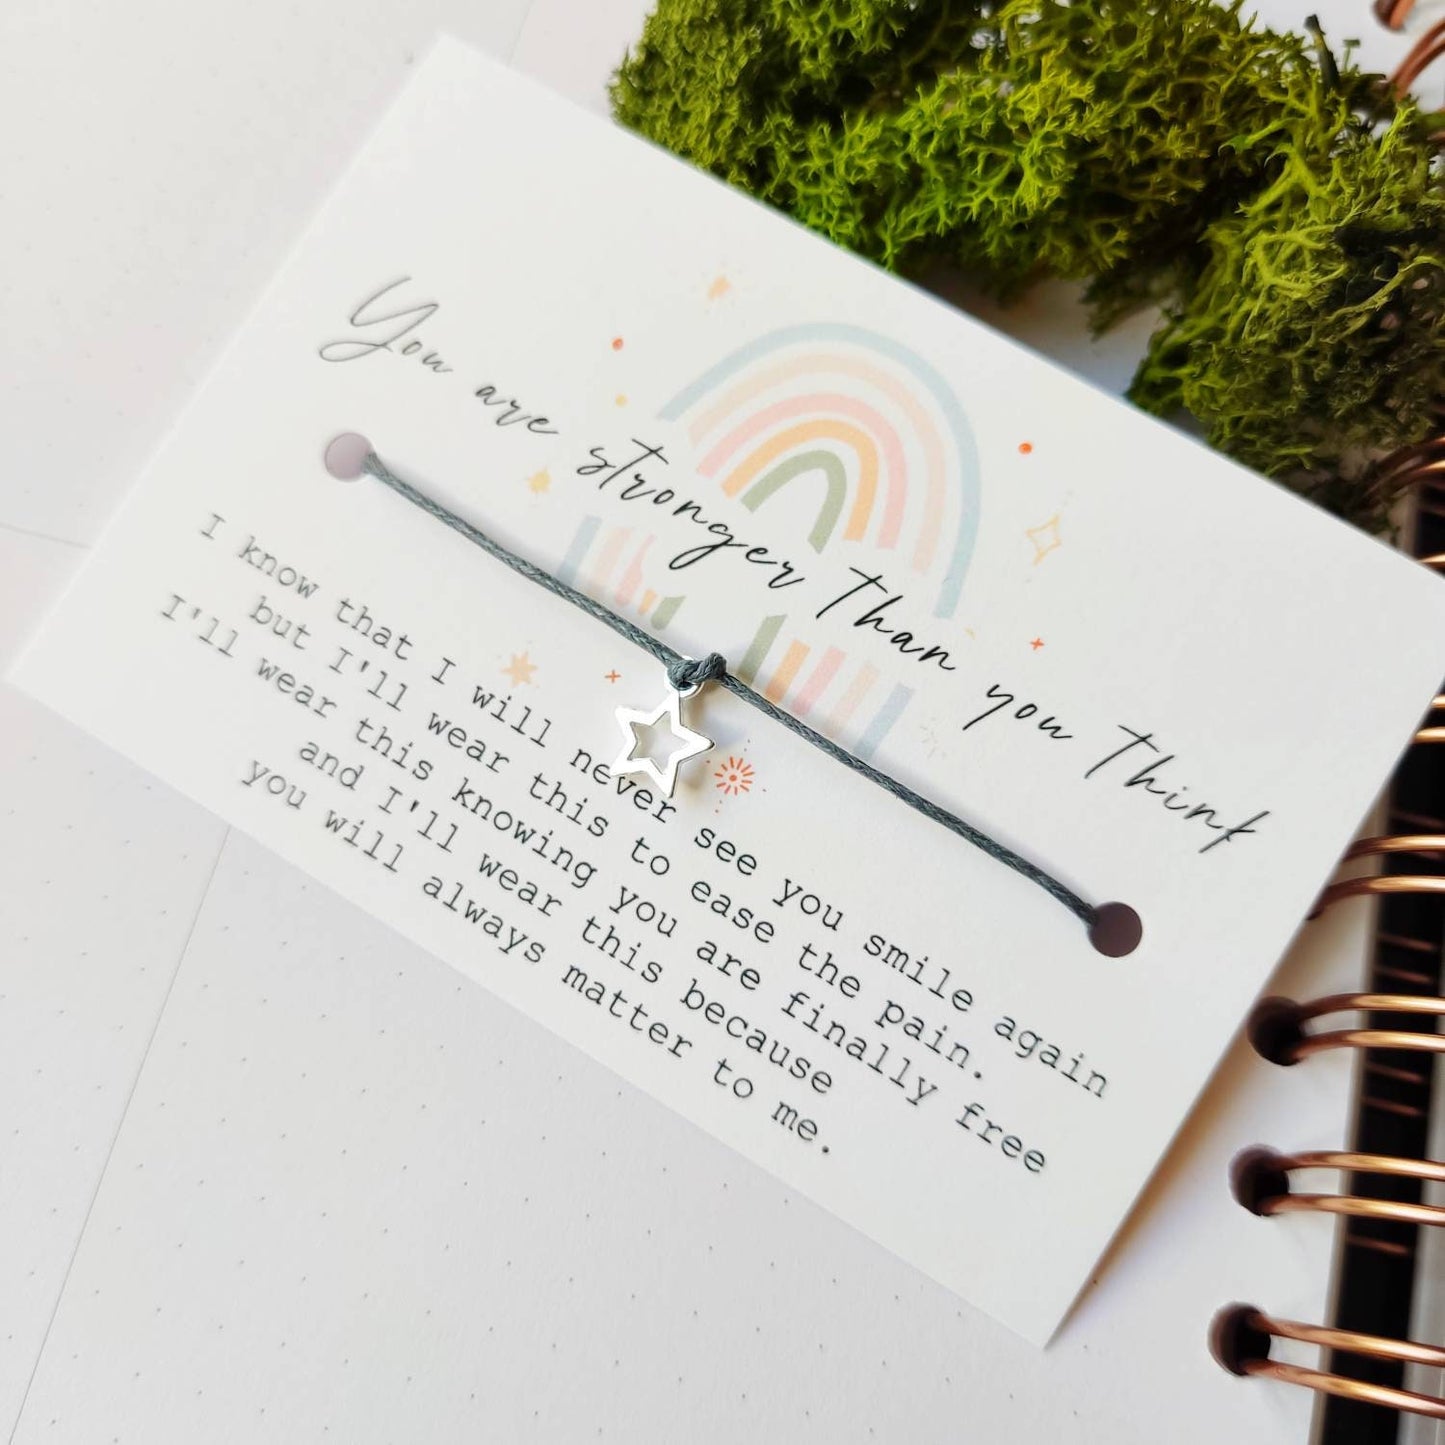 You are stronger than you think
I know that I will never see you smile again
but I'll wear this to ease the pain.
I'll wear this knowing you are finally free
and I'll wear this because
you will always matter to me.